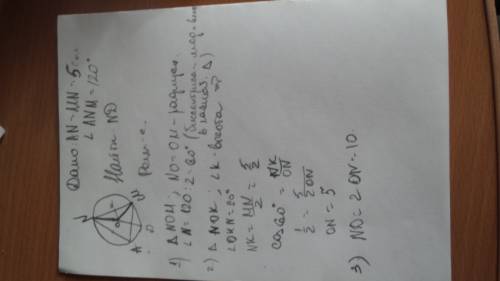 Дано: AN = MN = 5 см
∠ANM = 120°
Найти ND
Реш-е.
N
M
O
A
D
1) △NOM; NO = OM - радиусы.
∠N = 120 : 2 = 60°
в равноб. △)
2) △NOK; ∠K - высота ⇒
∠OKN = 90°
NK = MN/2 = 5/2
cos 60° = NK/ON
1/2 = 5/2ON
ON = 5
3) ND = 2ON = 10.